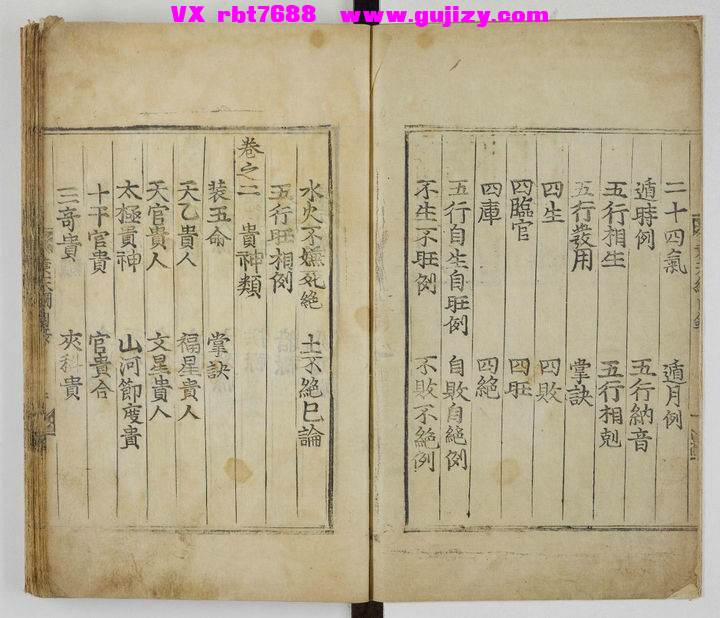 VX rbt7688 www.gujizy.com
二十四氣 遁月例
遁時例 五行納音
五行相生 五行相剋
五行發用 掌訣
四生 四敗
四臨官 四旺
四庫 四絕
五行自生自旺例 自敗自絕例
不生不旺例 不敗不絕例
水火不嫌死絕 土不絕巳論
五行旺相例
卷之二 貴神類
裝五命 掌訣
天乙貴人 福星貴人
天官貴人 文星貴人
太極貴神 山河節度貴
十干官貴 官貴合
三奇貴 夾科貴